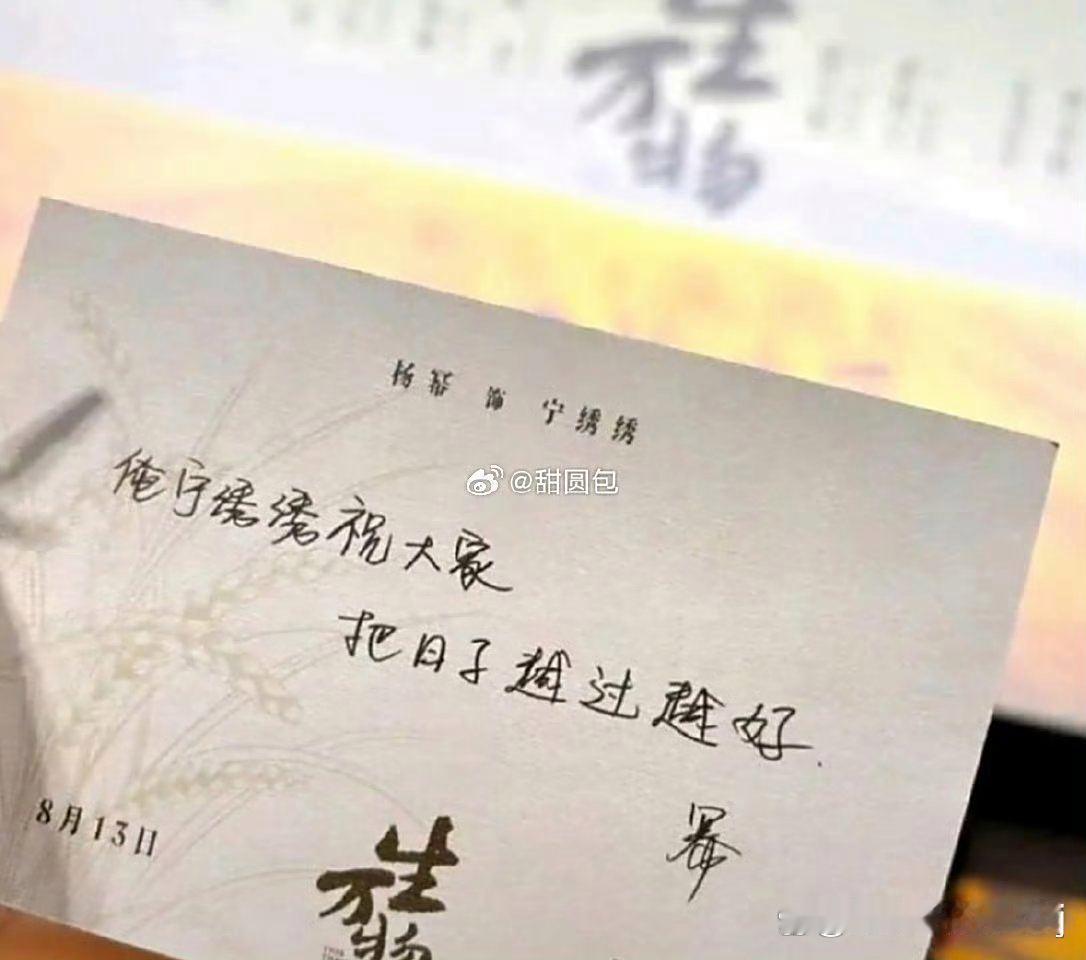 生
万
物
杨幂 饰 宁绣绣
@甜圆包
俺宁绣绣祝大家
把日子越过越好.
幂
8月13日
生
万
物